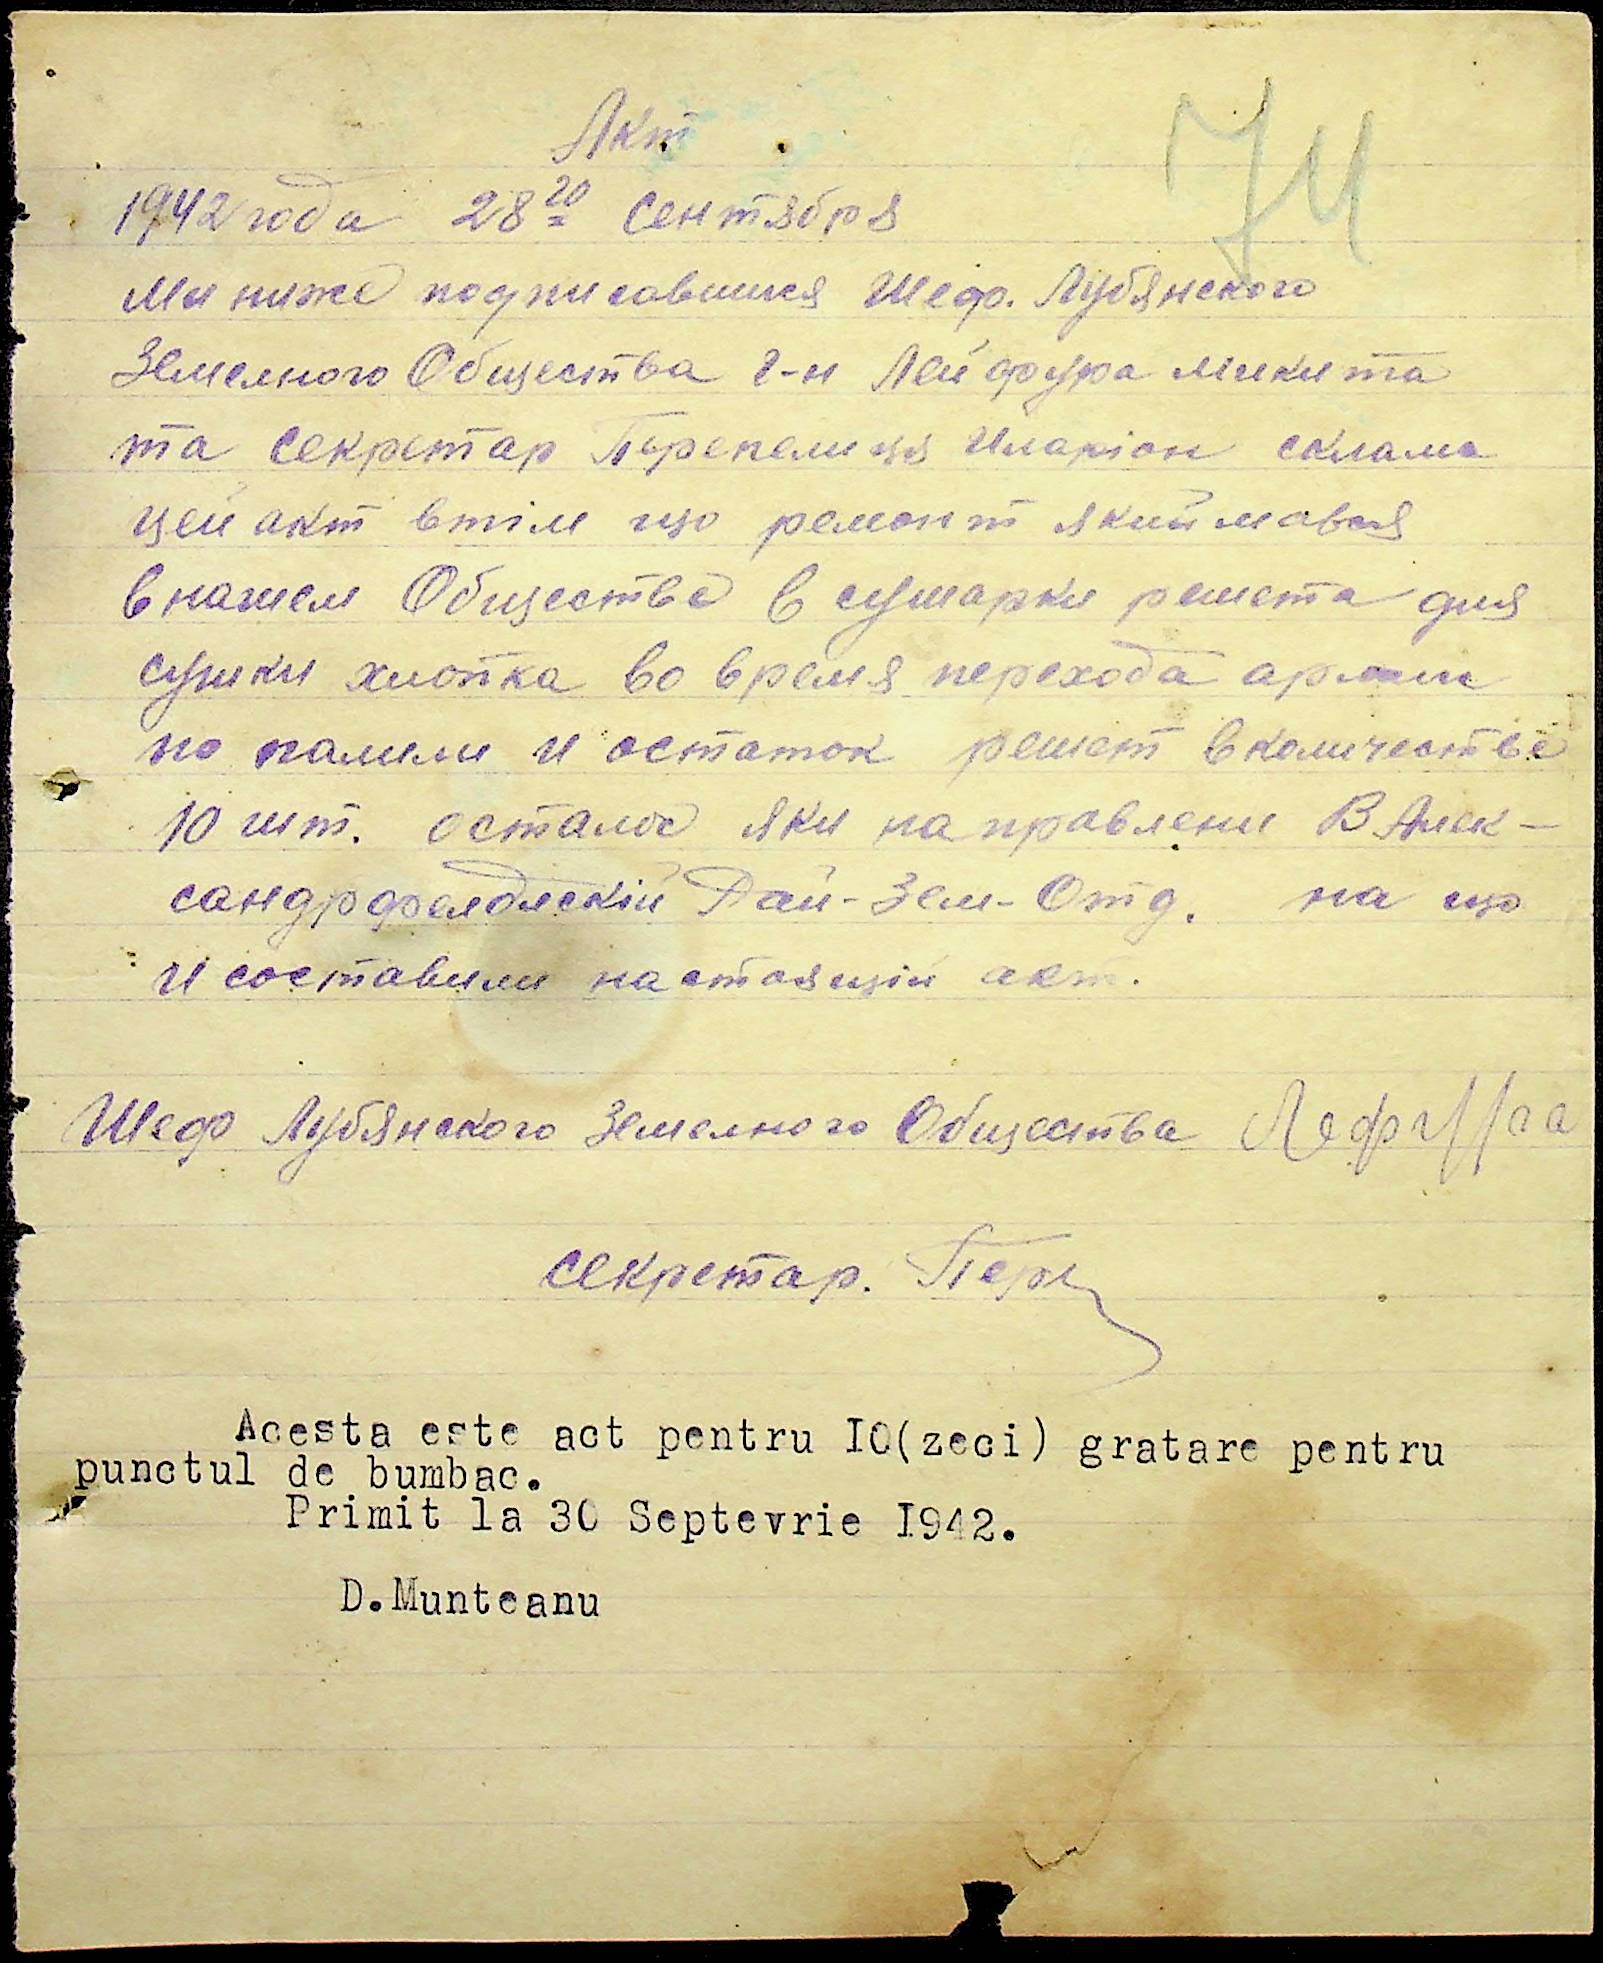 Акт
74
1942 года 28го Сентября
Ми ниже подписавшися Шеф. Лубянского
Земелного Общества г-н Лейфура Микита
та секретар Перепелиця Иларіон склали
цей акт втім що ремонт який мався
в нашем Обществе в сушарки решета для
сушки хлопка во время перехода армии
по палили и остаток решет в количестве
10 шт. осталос яки направлени В Алек-
сандрфелдяскій Рай-Зем-Отд. на що
и составили настоящій акт.
Шеф Лубянского Земелного Общества
секретар. Пер
Acesta este act pentru IO(zeci) gratare pentru
punctul de bumbac.
Primit la 30 Septevrie I942.
D.Munteanu